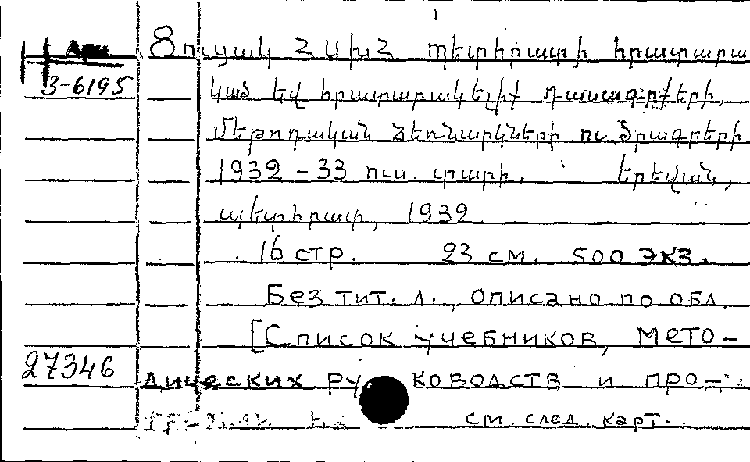 Арм
3-6195
Ցուցակ ՀՍԽՀ պետհրատի հրատարա
կած եվ հրատարակելիք դասագրքերի,
մեթոդական ձեռնարկների ու ծրագրերի
1932-33 ուս. տարի. Երեվան,
պետհրատ, 1932.
16 стр. 23 см. 500 экз.
Без тит. л., описано по обл.
[Список учебников, мето-
27346
дических руководств и про-
см. след. карт.